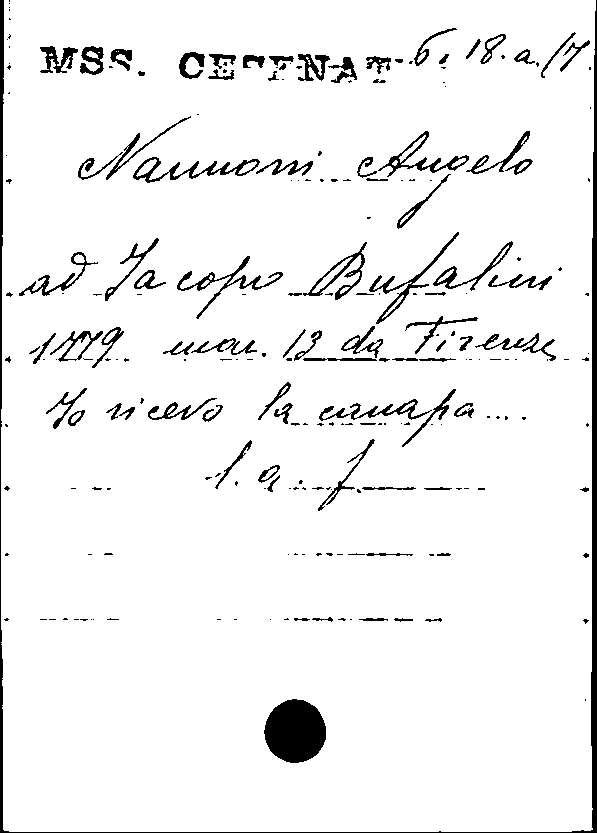 MSS. CESENAT 6. 18. a. /7
Nannoni Angelo
ad Jacopo Bufalini
1779 mar. 13 da Firenze
Io ricevo la canapa ....
l. a. f.